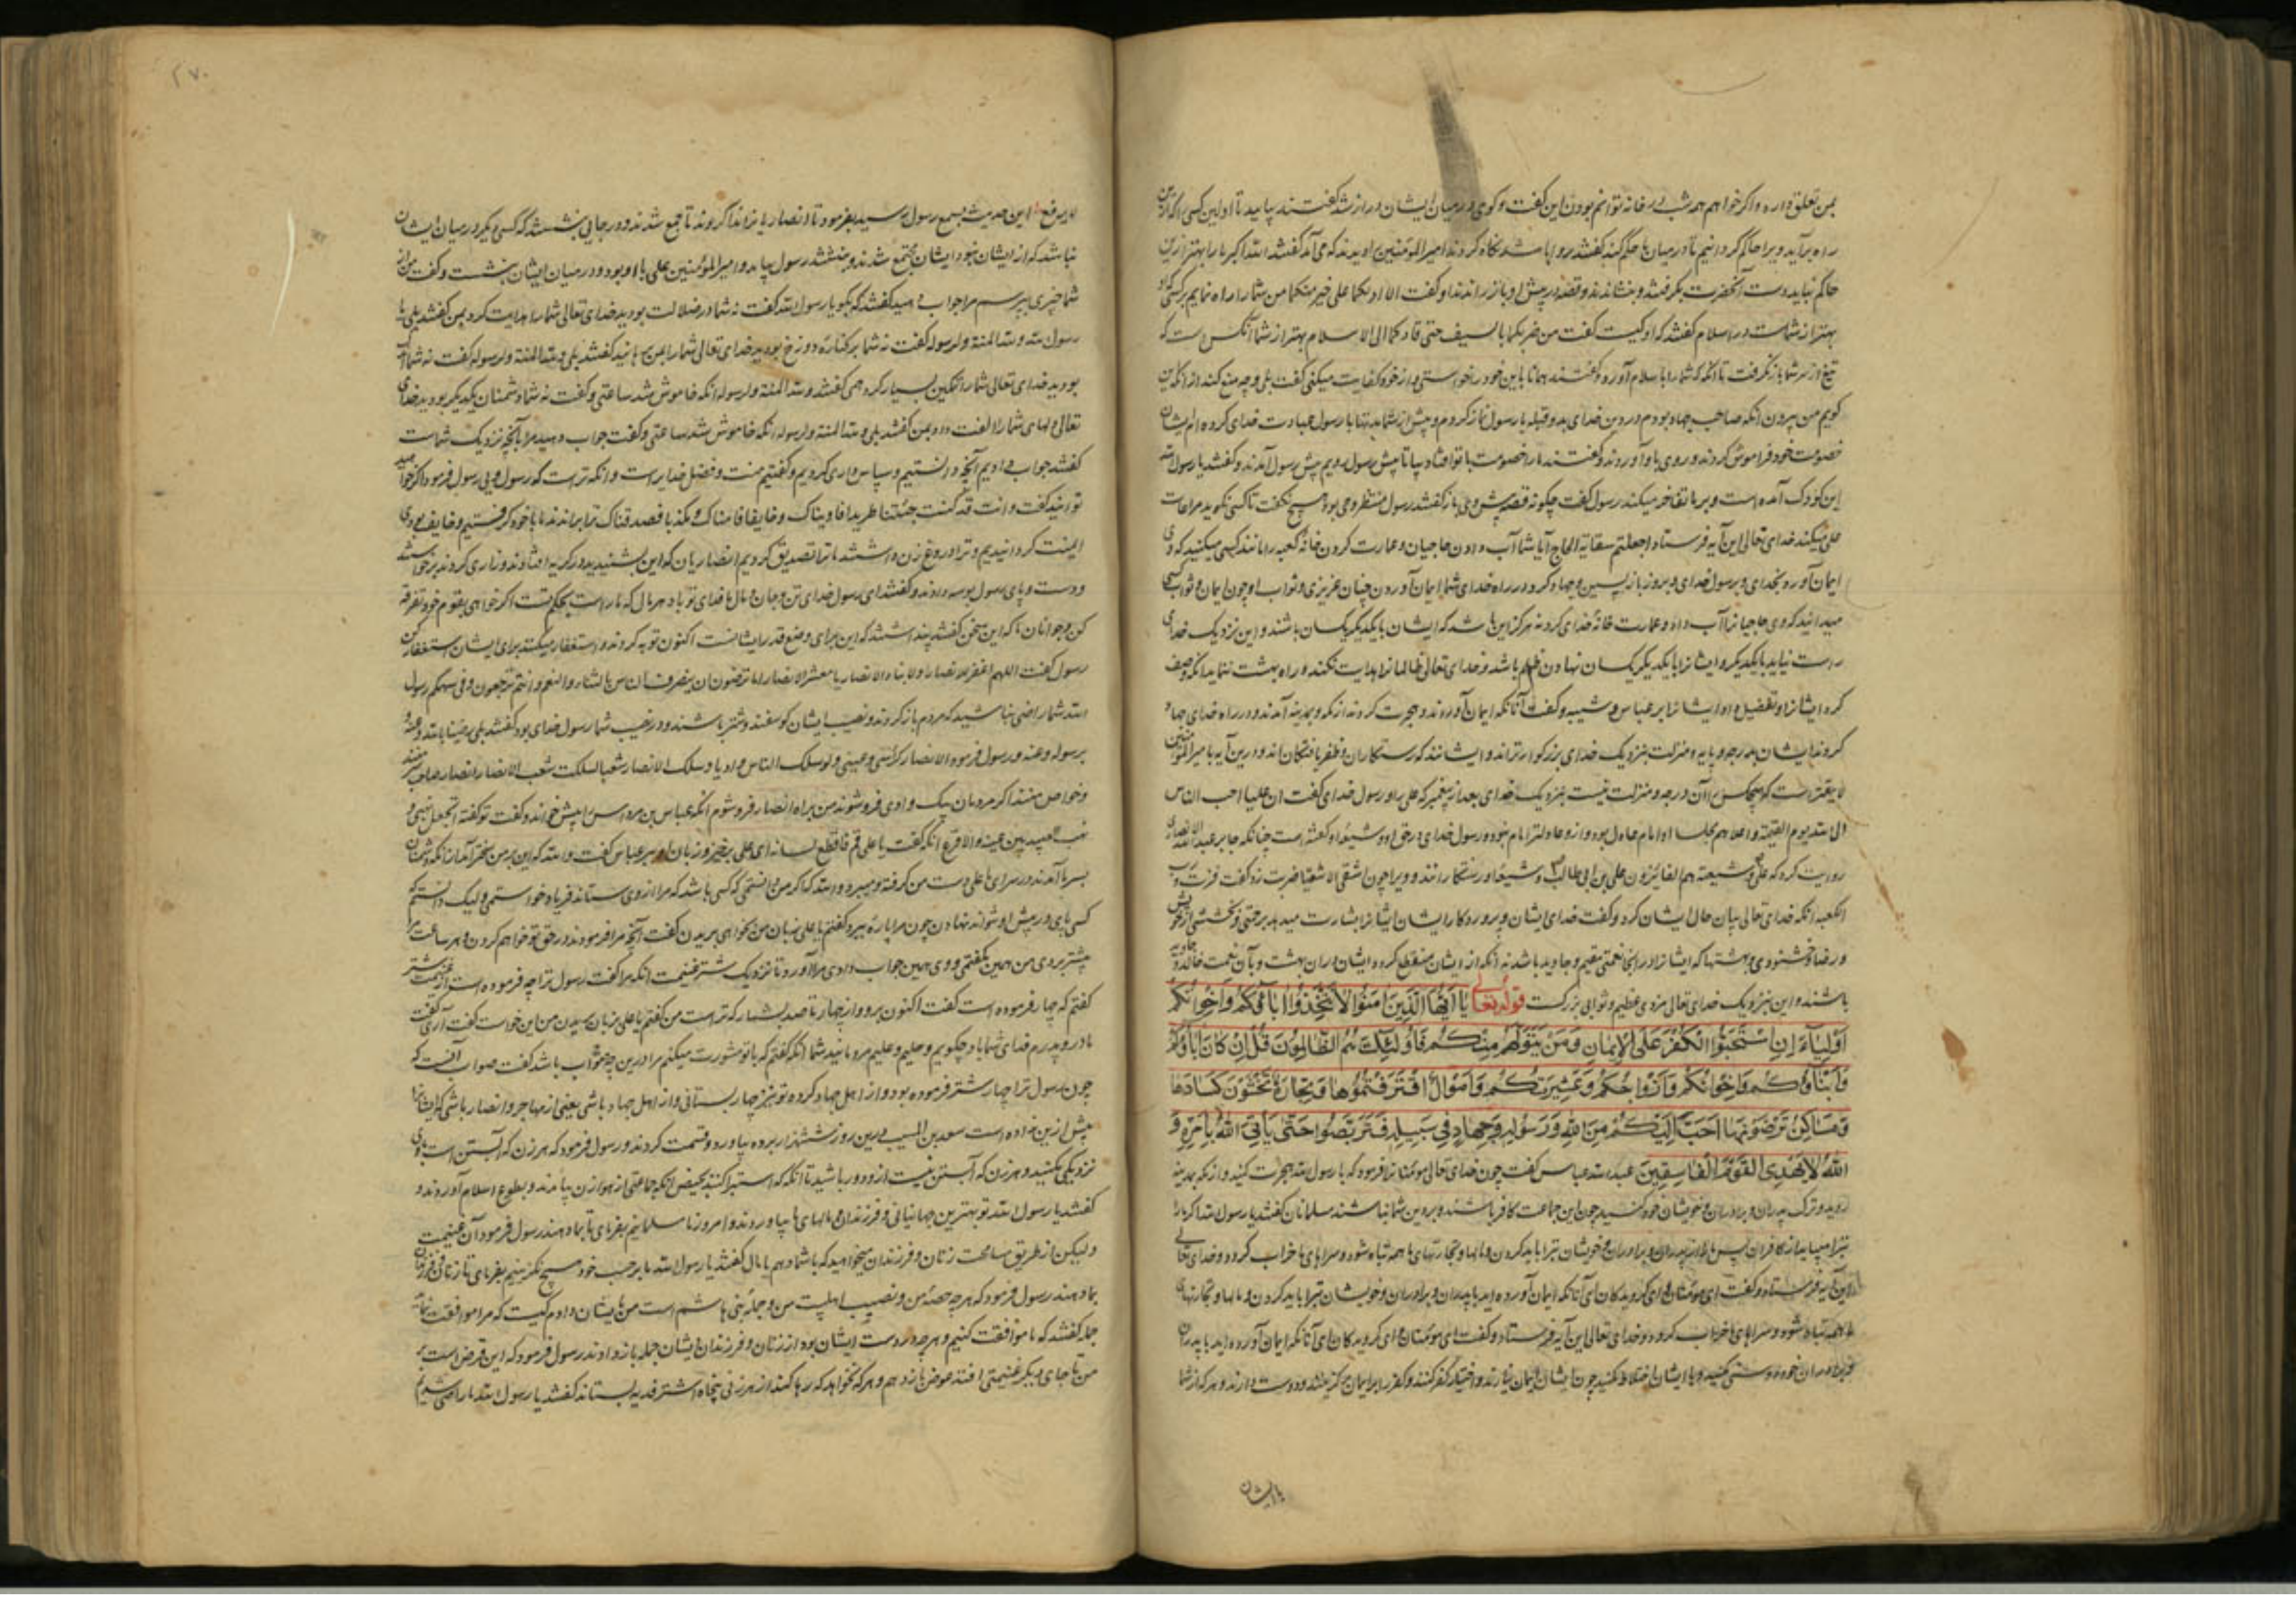 بمن تعلق دارد و اگر خواهم همه شب در خانه توانم بودن این گفت و کوی در میان ایشان دراز شد گفتند بیایید تا اولین کسی که ازین
راه برآید ویرا حاکم گردانیم تا در میان ما حکم کند امیرالمؤمنین را دیدند که می آمد گفتند الله اکبر ما را بهتر ازین
حاکم نیاید دست آنحضرت بگرفتند و بنشاندند و قصه در پیش او باز راندند او گفت الا ادلکما علی خیر منکما من شما را راه نمایم بر کسی که
بهتر از شماست در اسلام گفتند که او کیست گفت من ضربکما بالسیف حتی قادکما الی الاسلام بهتر از شما آنکس است که
تیغ از سر شما باز نگرفت تا آنکه که شما را باسلام آورد گفتند همانا باین خود را خواستی و از خود کفایت میکنی گفت بلی وچه منع کند از آنکه این
کویم من بیرون آنکه صاحب جهاد بودم در دین خدای بدو قبله با رسول نماز کردم و پیش از شما با رسول عبادت خدای کرده ام ایشان
خصومت خود فراموش کردند و روی باو آوردند و گفتند ما را خصومت با تو افتاد بیا تا پیش رسول رویم پیش رسول آمدند و گفتند یا رسول الله
این کودک آمده است و بر ما تفاخر میکند رسول گفت چگونه قصه پیش وی باز گفتند رسول منتظر وحی بود هیچ نگفت تا کسی نگوید مراعات
علی میکند خدای تعالی این آیه فرستاد اجعلتم سقایة الحاج آیا شما آب دادن حاجیان و عمارت کردن خانه کعبه را مانند کسی میکنید که وی
ایمان آورد بخدای و برسول خدای و بروز بازپسین و جهاد کرد در راه خدای شما ایمان آوردن چنان عزیزی و ثواب او چون ایمان و ثواب کسی
میدانید که وی حاجیانرا آب داد و عمارت خانه خدای کرد نه هرگز این باشد که ایشان با یکدیگر یکسان باشند و این نزدیک خدای
راست نیاید با یکدیگر و ایشانرا با یکدیگر یکسان نهادن ظلم باشد و خدای تعالی ظالمانرا هدایت نکند و راه بهشت ننماید آنکه وصف
کرد ایشانرا و تفضیل داد ایشانرا بر عباس و شیبه و گفت آنانکه ایمان آوردند و هجرت کردند از مکه و بمدینه آمدند و در راه خدای جهاد
کردند ایشان بدرجه و پایه و منزلت بنزدیک خدای بزرگوارتراند و ایشانند که رستکاران و ظفر یافتکان اند و درین آیه با امیرالمؤمنین
لایقتر است که هیچکس را آن درجه و منزلت نیست بنزدیک خدای بعد از پیغمبر که علی را و رسول خدای گفت ان علیا احب الناس
الی الله یوم القیمة و اعلاهم مجلسا او امام عادل بود و ازو عادلتر امام نبود و رسول خدای در حق او و شیعه او گفته است چنانکه جابر عبدالله انصاری
روایت کرد که علی و شیعته هم الفائزون علی بن ابی طالب و شیعه او رستکارانند و ویرا چون اشقی الاشقیا ضربت زد گفت فزت و رب
الکعبه آنکه خدای تعالی بیان حال ایشان کرد و گفت خدای ایشان و پروردکار ایشان ایشانرا بشارت میدهد برحمتی و بخششی از خویش
و رضا و خشنودی و بهشتها که ایشانرا در آنجا نعمتی مقیم و جاوید باشد نه آنکه از ایشان منقطع گردد ایشان در آن بهشت و بآن نعمت خالد و جاوید
باشند و این بنزدیک خدای تعالی مزدی عظیم و ثوابی بزرگست قوله تعالی یا ایها الذین امنوا لا تتخذوا اباءکم و اخوانکم
اولیاء ان استحبوا الکفر علی الایمان و من یتولهم منکم فاولئک هم الظالمون قل ان کان اباؤکم
و ابناؤکم و اخوانکم و ازواجکم و عشیرتکم و اموال اقترفتموها و تجارة تخشون کسادها
و مساکن ترضونها احب الیکم من الله و رسوله و جهاد فی سبیله فتربصوا حتی یأتی الله بامره و
الله لا یهدی القوم الفاسقین عبدالله عباس گفت چون خدای تعالی مؤمنانرا فرمود که با رسول الله هجرت کنید و از مکه بمدینه
روید و ترک پدران و برادران و خویشان خود کنید چون این جماعت کافر باشند و بر دین شما نباشند مسلمانان گفتند یا رسول الله اگر ما را
تبرا میباید از کافران پس ما را از پدران و برادران و خویشان تبرا باید کردن و مالها و تجارتهای ما همه تباه شود و سراهای ما خراب گردد و خدای تعالی
این آیه فرستاد و گفت ای مؤمنان و ای گرویدکان ای آنانکه ایمان آورده اید با پدران و برادران و خویشان تبرا باید کردن و مالها و تجارتهای
ما همه تباه شود و سراهای ما خراب گردد و خدای تعالی این آیه فرستاد و گفت ای مؤمنان و ای گرویدکان ای آنانکه ایمان آورده اید با پدران
و برادران خود دوستی مکنید و با ایشان اختلاط مکنید چون ایشان ایمان نیارند و اختیار کفر کنند و کفر را بر ایمان برگزینند و دوست دارند و هر که از شما
با ایشان
۲۷۰
این حدیث بسمع رسول رسید بفرمود تا انصاریانرا ندا کردند تا جمع شدند و در جایی بنشستند که کسی دیگر در میان ایشان
نباشد که از ایشان نبود ایشان مجتمع شدند و بنشستند رسول بیامد و امیرالمؤمنین علی با او بود و در میان ایشان بنشست و گفت من از
شما چیزی بپرسم مرا جواب دهید گفتند که بگو یا رسول الله گفت نه شما در ضلالت بودید خدای تعالی شما را هدایت کرد بمن گفتند بلی یا
رسول الله و لله المنة و لرسوله گفت نه شما بر کناره دوزخ بودید خدای تعالی شما را بمن برهانید گفتند بلی و لله المنة و لرسوله گفت نه شما اندک
بودید خدای تعالی شما را بمن بسیار کرد گفتند و لله المنة و لرسوله آنکه خاموش شد ساعتی و گفت نه شما دشمنان یکدیگر بودید خدای
تعالی دلهای شما را الفت داد بمن گفتند بلی و لله المنة و لرسوله آنکه خاموش شد ساعتی و گفت جواب دهید مرا بآنچه نزدیک شماست
گفتند جواب دادیم آنچه دانستیم و سپاس داری کردیم و گفتیم منت و فضل خدایراست و آنکه تراست که رسول ویی رسول فرمود اگر خواهید
توانید گفت و انت قد کنت جئتنا طریدا فاویناک و خایفا فامناک و مکذبا فصدقناک ترا براندند ما با خود گرفتیم و خایف بودی
ایمنت گردانیدیم و ترا دروغ زن داشتند ما ترا تصدیق کردیم انصاریان که این بشنیدند در گریه افتادند و زاری کردند برخواستند
و دست و پای رسول بوسه دادند و گفتند ای رسول خدای تن و جان و مال ما فدای تو باد هر مال که ما راست بحکم تست اگر خواهی بقوم خود تفرقه
کن و جوانان ما که این سخن گفتند پنداشتند که این برای وضع قدر ایشانست اکنون توبه کردند و استغفار میکنند برای ایشان استغفار کن
رسول گفت اللهم اغفر للانصار و لابناء الانصار یا معشر الانصار اما ترضون ان ینصرف الناس بالشاء و النعم و انتم ترجعون و فی سهمکم رسول
الله شما راضی نباشید که مردم باز گردند و نصیب ایشان کوسفند و شتر باشند و در نصیب شما رسول خدای بود گفتند بلی رضینا بالله و عنه و
برسوله و عنه و رسول فرمود الانصار کرشی و عیبتی و لو سلک الناس وادیا و سلک الانصار شعبا لسلکت شعب الانصار انصار صاحب سر منند
و خواص منند اگر مردمان بیک وادی فرو شوند من براه انصار فرو شوم آنکه عباس بن مرداس را پیش خواند و گفت تو گفته اتجعل نهبی و
نهب العبید بین عیینة و الاقرع آنکه گفت یا علی قم فاقطع لسانه ای علی برخیز و زبان او ببر عباس گفت والله که این بر من سختر آمد از آنکه دشمنان
بسر ما آمدند در سرای ما علی دست من گرفته و میبرد و الله که اگر من دانستمی که کسی باشد که مرا از وی ستاند فریاد خواستمی و لیک دانستم که
کسی پای در پیش او نتواند نهادن چون مرا پاره ببرد گفتم یا علی زبان من بخواهی بریدن گفت آنچه مرا فرمودند در حق تو خواهم کردن و هر ساعت مرا
پیشتر بردی من همین بگفتمی و وی همین جواب دادی مرا آورد تا نزدیک شتر غنیمت آنکه مرا گفت رسول ترا چه فرموده است از غنیمت شتر
گفتم که چهار فرموده است گفت اکنون برو و از چهار تا صد بشمار که تراست من گفتم یا علی زبان بریدن من این خواست گفت آری گفت
مادر و پدرم فدای شما باد چه کریم و حلیم و علیم مردمانید شما آنکه گفتم که با تو مشورت میکنم مرا درین چه صواب باشد گفت صواب آنست که
چون رسول ترا چهار شتر فرموده بود و از اهل جهاد کرده تو نیز چهار بستانی و از اهل جهاد باشی یعنی از مهاجر و انصار باشی که ایشانرا
بیش ازین نداده است سعد بن المسیب درین روز ششهزار برده بیاورد و قسمت کردند و رسول فرمود که هر زن که آبستن است با وی
نزدیکی مکنید و هر زن که آبستن نیست ازو دور باشید تا آنکه که استبرا کنند بحیض آنکه جماعتی از هوازن بیامدند و بطوع اسلام آوردند و
گفتند یا رسول الله تو بهترین جهانیانی و فرزندان و مالهای ما بیاوردند و امروز ما مسلمانیم بفرمای تا بما دهند رسول فرمود آن غنیمت
و لیکن از طریق مسامحت زنان و فرزندان میخواهید که باشما دهم یا مال گفتند یا رسول الله ما بر حسب خود هیچ نگزینیم بفرمای تا زنان و فرزندان
بما دهند رسول فرمود که هر چه حصه من و نصیب اهلبیت من و جمله بنی هاشم است من بایشان دادم کیست که مرا موافقت نماید
جمله گفتند که ما موافقت کنیم و هر چه در دست ایشان بود از زنان و فرزندان ایشان جمله باز دادند رسول فرمود که این قرض است بر
من تا جای دیگر غنیمتی افتد عوض باز دهم و هر که نخواهد که رها کند از هر زنی پنجاه اشتر فدیه بستاند گفتند یا رسول الله ما راضی شدیم